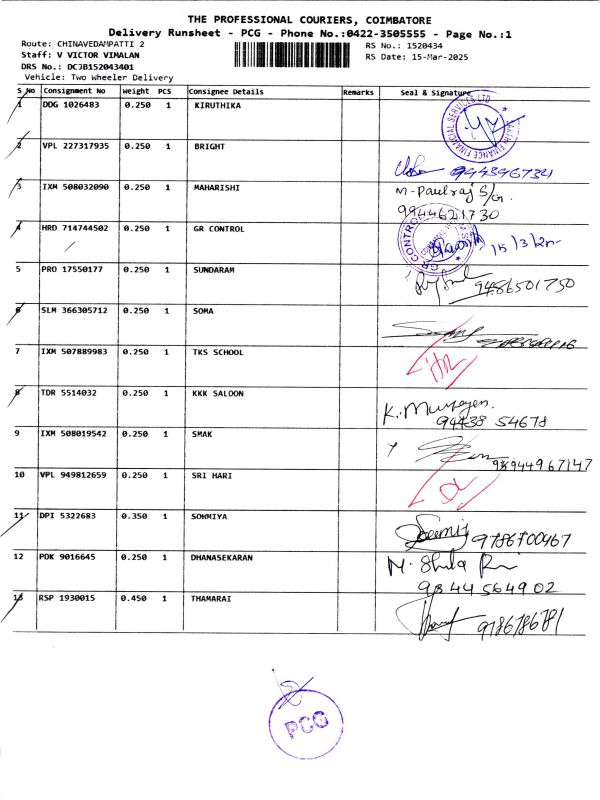 THE PROFESSIONAL COURIERS, COIMBATORE
Delivery Runsheet - PCG - Phone No.:0422-3505555 - Page No.:1
Route: CHINAVEDAMPATTI 2
RS No.: 1520434
Staff: V VICTOR VIMALAN
RS Date: 15-Mar-2025
DRS No.: DCJB152043401
Vehicle: Two Wheeler Delivery
S No Consignment No Weight PCS Consignee Details Remarks Seal & Signature
1 DDG 1026483 0.250 1 KIRUTHIKA
2 VPL 227317935 0.250 1 BRIGHT
9443967321
3 IXM 508032090 0.250 1 MAHARISHI M-Paulraj S/Gr.
9944621730
4 HRD 714744502 0.250 1 GR CONTROL GR CONTROL 15/3/25
5 PRO 17550177 0.250 1 SUNDARAM
9486501750
6 SLM 366305712 0.250 1 SOMA
7 IXM 507889983 0.250 1 TKS SCHOOL
8 TDR 5514032 0.250 1 KKK SALOON K. Murugen.
94438 54678
9 IXM 508019542 0.250 1 SMAK
9944967147
10 VPL 949812659 0.250 1 SRI HARI DL
11 DPI 5322683 0.350 1 SOWMIYA
9786700467
12 PDK 9016645 0.250 1 DHANASEKARAN
9844564902
13 RSP 1930015 0.450 1 THAMARAI
9786786781
PCG